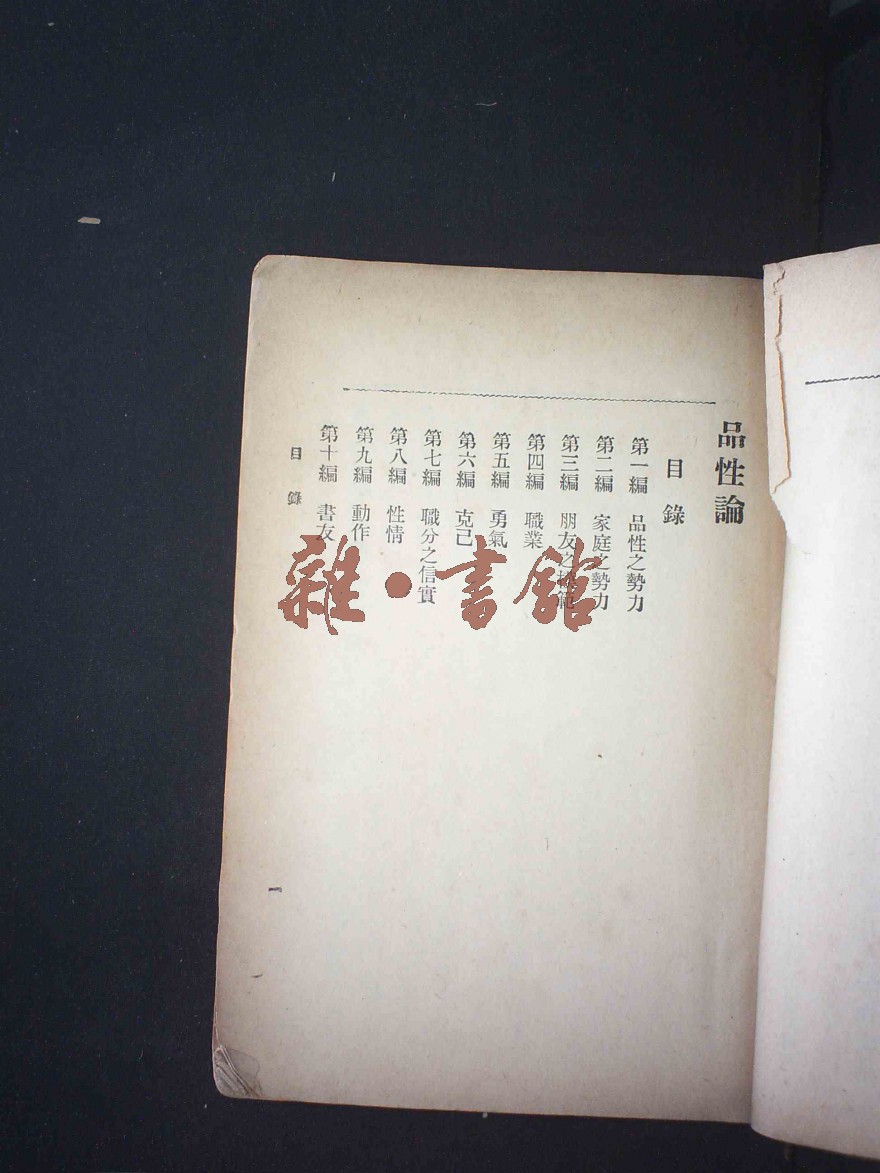 品性論
目錄
第一編 品性之勢力
第二編 家庭之勢力
第三編 朋友之模範
第四編 職業
第五編 勇氣
第六編 克己
第七編 職分之信實
第八編 性情
第九編 動作
第十編 書友
目錄
一
雜·書館